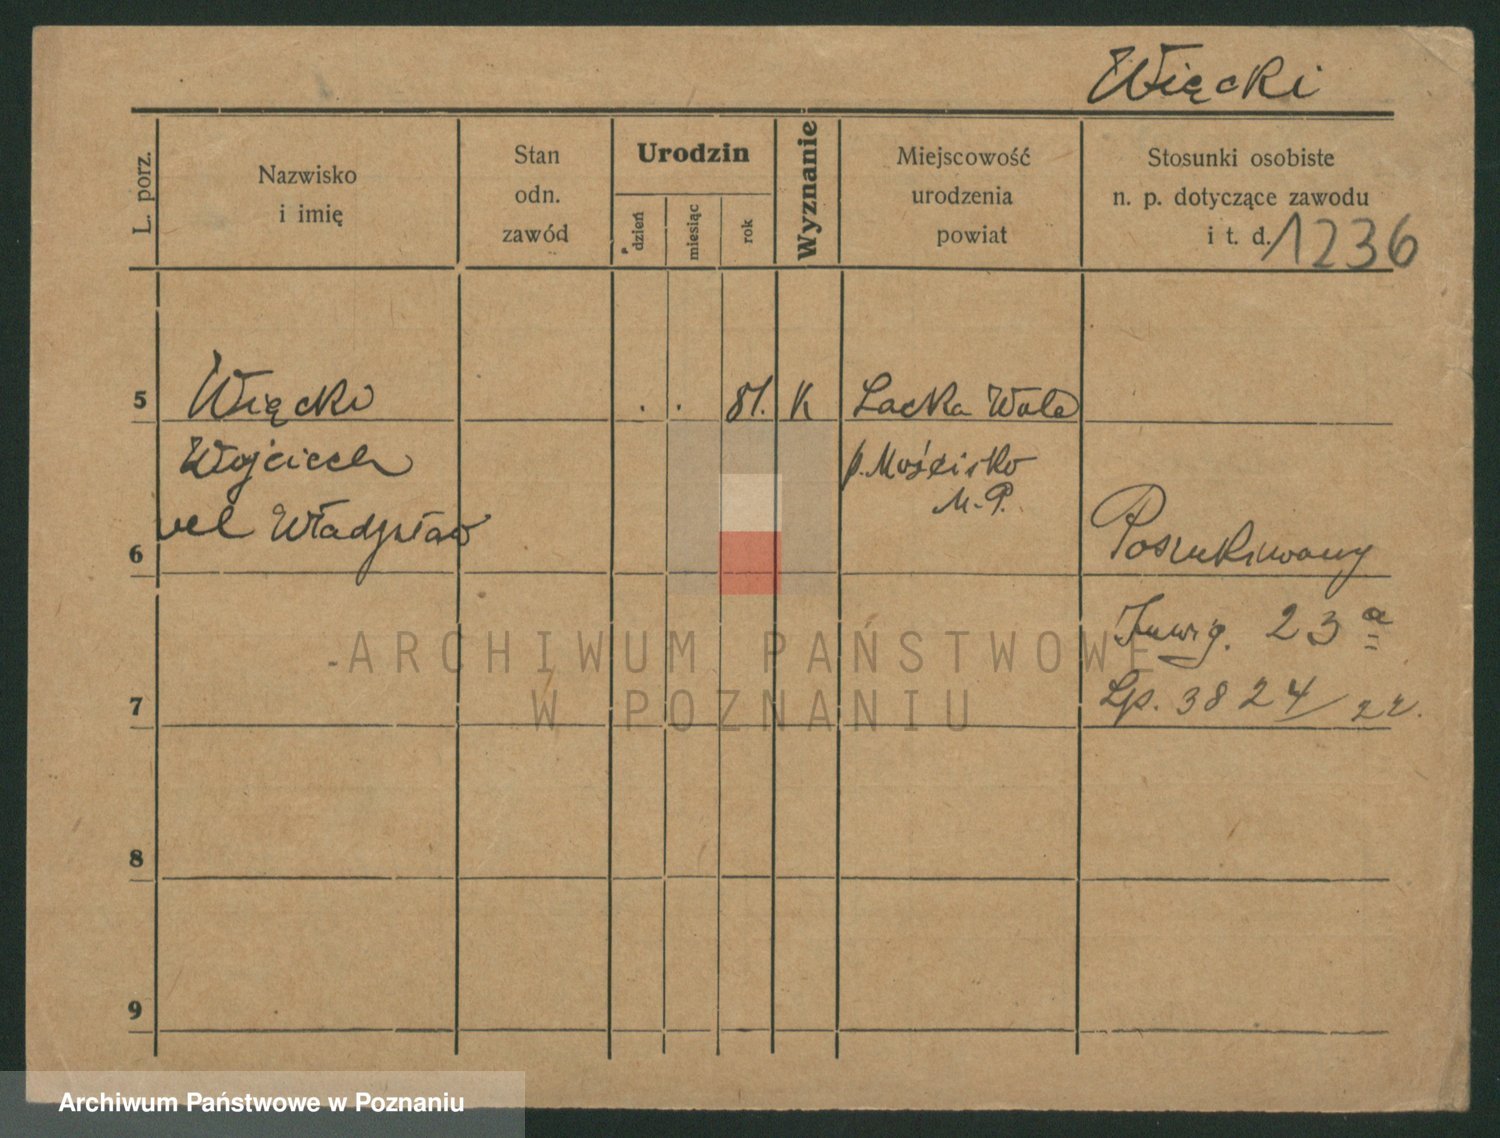 Więcki
L. porz.
Nazwisko
i imię
Stan
odn.
zawód
Urodzin
dzień
miesiąc
rok
Wyznanie
Miejscowość
urodzenia
powiat
Stosunki osobiste
n. p. dotyczące zawodu
i t. d.
1236
5
Więcki
. . 81. K
Lacka Wola
Wojciech
p. Mościsko
M. P.
vel Władysław
6
Poszukiwany
23 a
7
Lp. 3824/22.
8
9
ARCHIWUM PAŃSTWOWE
W POZNANIU
Archiwum Państwowe w Poznaniu